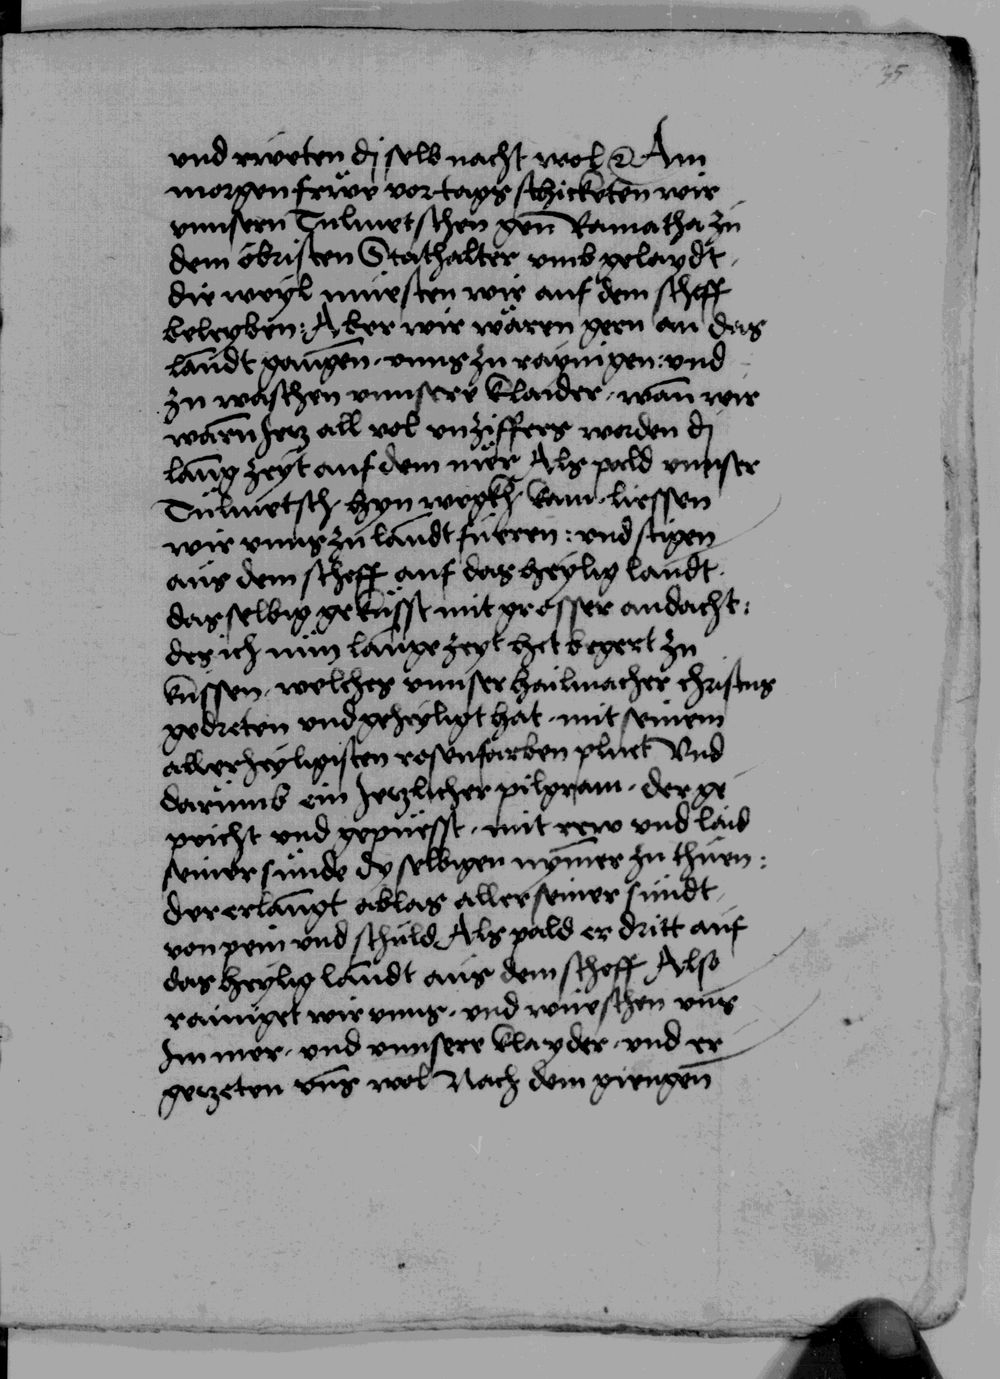 35
vnd rweten dj selb nacht wol Am
morgen frwe vor tags schickten wir
vnnsern Tulmetschen gen Ramatha zu
dem obristen Stathalter vmb gelaydt.
die weyl muesten wir auf dem scheff
beleyben: Aber wir wären gern an das
landt gangen. vnns zu raynigen: vnd
zu waschen vnnsere klaider. wan wir
warn Jetz all vol vnziffers worden dj
lang zeyt auf dem mer Als pald vnnser
Tulmetsch. hyn wegkh. kam. liessen
wir vnns zu landt fueren: vnd stigen
aus dem scheff auf das heylig landt.
das selbig gekusst mit grosser andacht:
des ich nun lange zeyt het begert zu
kussen. welches vnnser hailmacher christus
gedreten vnd geheyligt hat. mit seinem
allerheyligisten rosenfarben pluet Vnd
darumb ein Jetzlicher pilgram. der ge
peicht vnd gepuesst. mit rew vnd laid
seiner sunde dy selbigen nymer zu thuen:
der erlangt ablas aller seiner sundt.
von pein vnd schuld Als pald er dritt auf
das heylig landt aus dem scheff Also
rainiget wir vnns. vnd wueschen vns
Im mer. vnd vnnsere klayder. vnd er
getzeten vns wol Nach dem giengen